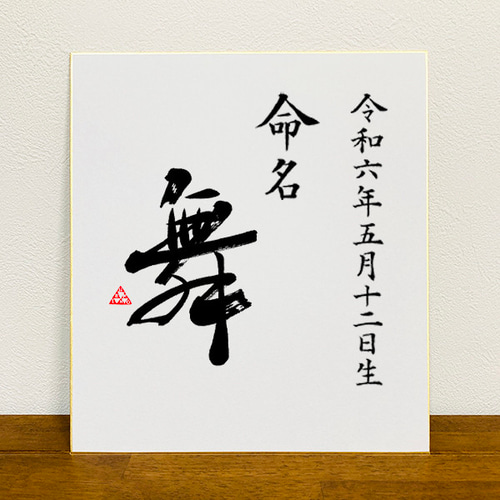 令和六年五月十二日生
命名
舞